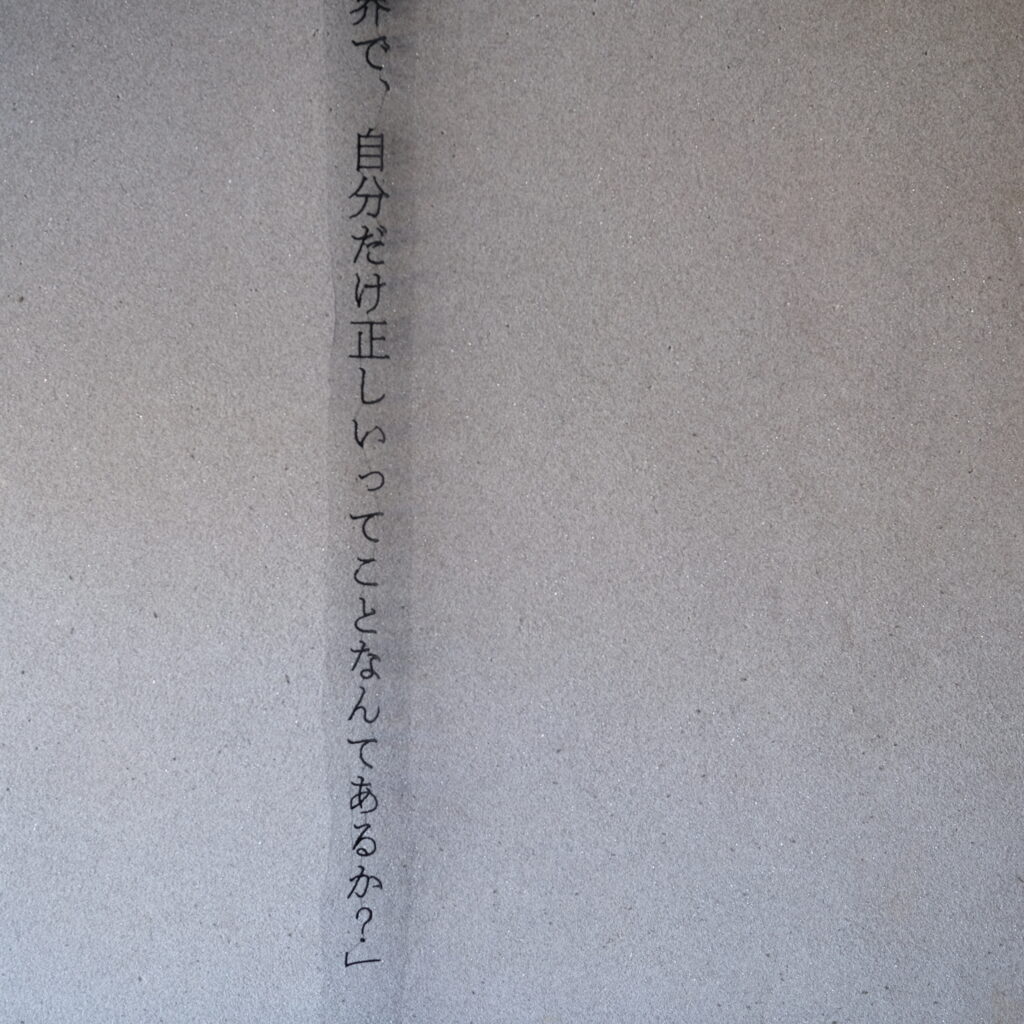 界で、自分だけ正しいってことなんてあるか?」